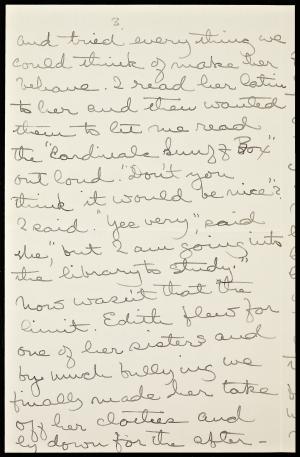 3.
and tried everything we
could think of make her
behave. I read her latin
to her and then wanted
them to let me read
the "Cardinals Snuff Box"
out loud. "Don't you
think it would be nice"?
I said. "Yes very", said
she, "but I am going into
the library to study."
Now wasn't that the
limit. Edith flew for
one of her sisters and
by much bullying we
finally made her take
off her clothes and
ly down for the after-